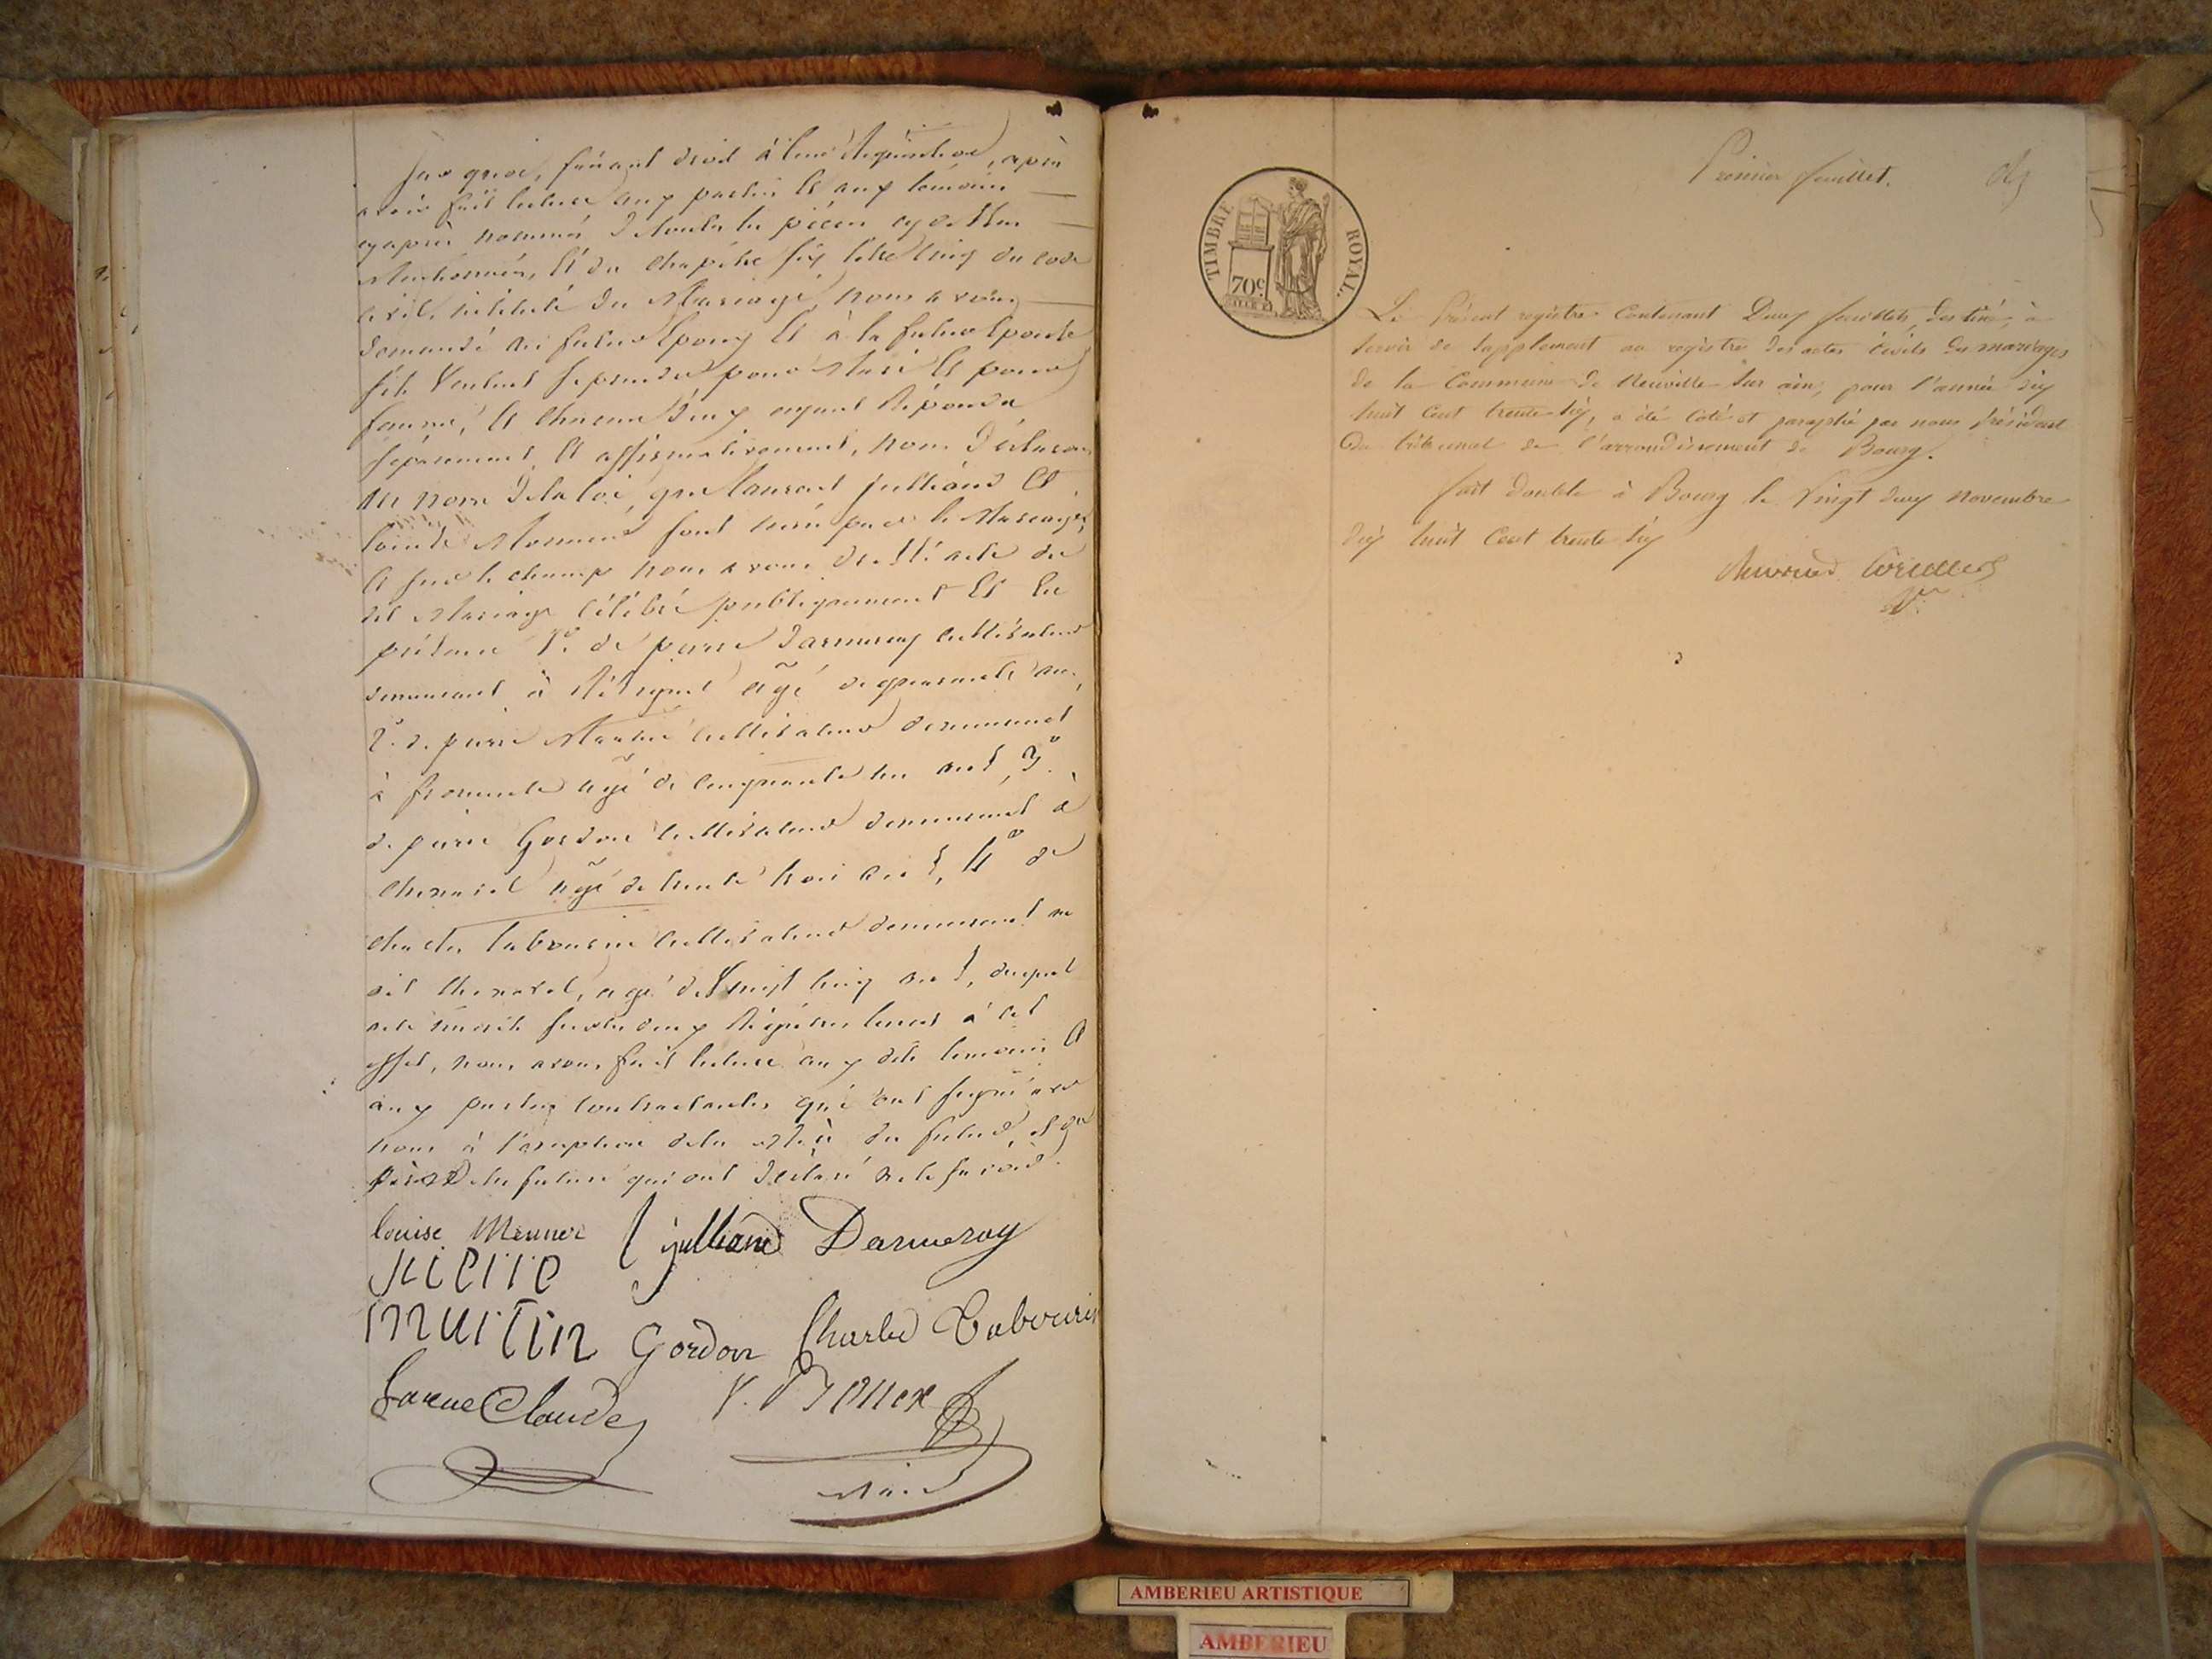 Sur quoi, faisant droit à leur Réquisition, après
avoir fait lecture aux parties et aux témoins
cyaprès nommés de toutes les pièces cydessus
Mentionnées, et du chapitre six titre cinq du code
civil, intitulé du Mariage, nous avons
demandé au futur Epoux et à la future Epouse
s'ils veulent se prendre pour Mari et pour
femme, et chacun d'eux ayant Répondu
séparément et affirmativement, nous déclarons
au nom de la loi, que laurent julliand et
louise sont unis par le Mariage,
et sur le champ nous avons dressé acte du
dit Mariage célébré publiquement et en
présence 1º de pierre Darmeray cultivateur
demeurant à agé de quarante ans,
2º de pierre Martin cultivateur demeurant
à fromente agé de cinquante un ans, 3º
de pierre Gordon cultivateur demeurant à
Chenavel agé de trente trois ans, 4º de
charles tabourin cultivateur demeurant au
dit Chenavel, agé de Vingt cinq ans, duquel
acte inscrit sur les deux Régistres tenus à cet
effet, nous avons fait lecture aux dits temoins et
aux parties contractantes qui ont signé avec
nous à l'exception de la mère du futur, et du
père de la future qui ont déclaré ne le savoir.
louise Meunier l julliand Darmeray
pierre
martin Gordon Charle Tabourin
Claude
Maire
Premier feuillet.
TIMBRE ROYAL.
70c.
Le Présent registre Contenant Deux feuillets, destiné à
servir de supplement au registre des actes civils de mariages
de la Commune de Neuville sur ain, pour l'année dix
huit Cent trente six, a été coté et paraphé par nous Président
du tribunal de l'arrondissement de Bourg.
fait double à Bourg le Vingt deux novembre
dix huit Cent trente six
AMBERIEU ARTISTIQUE
AMBERIEU